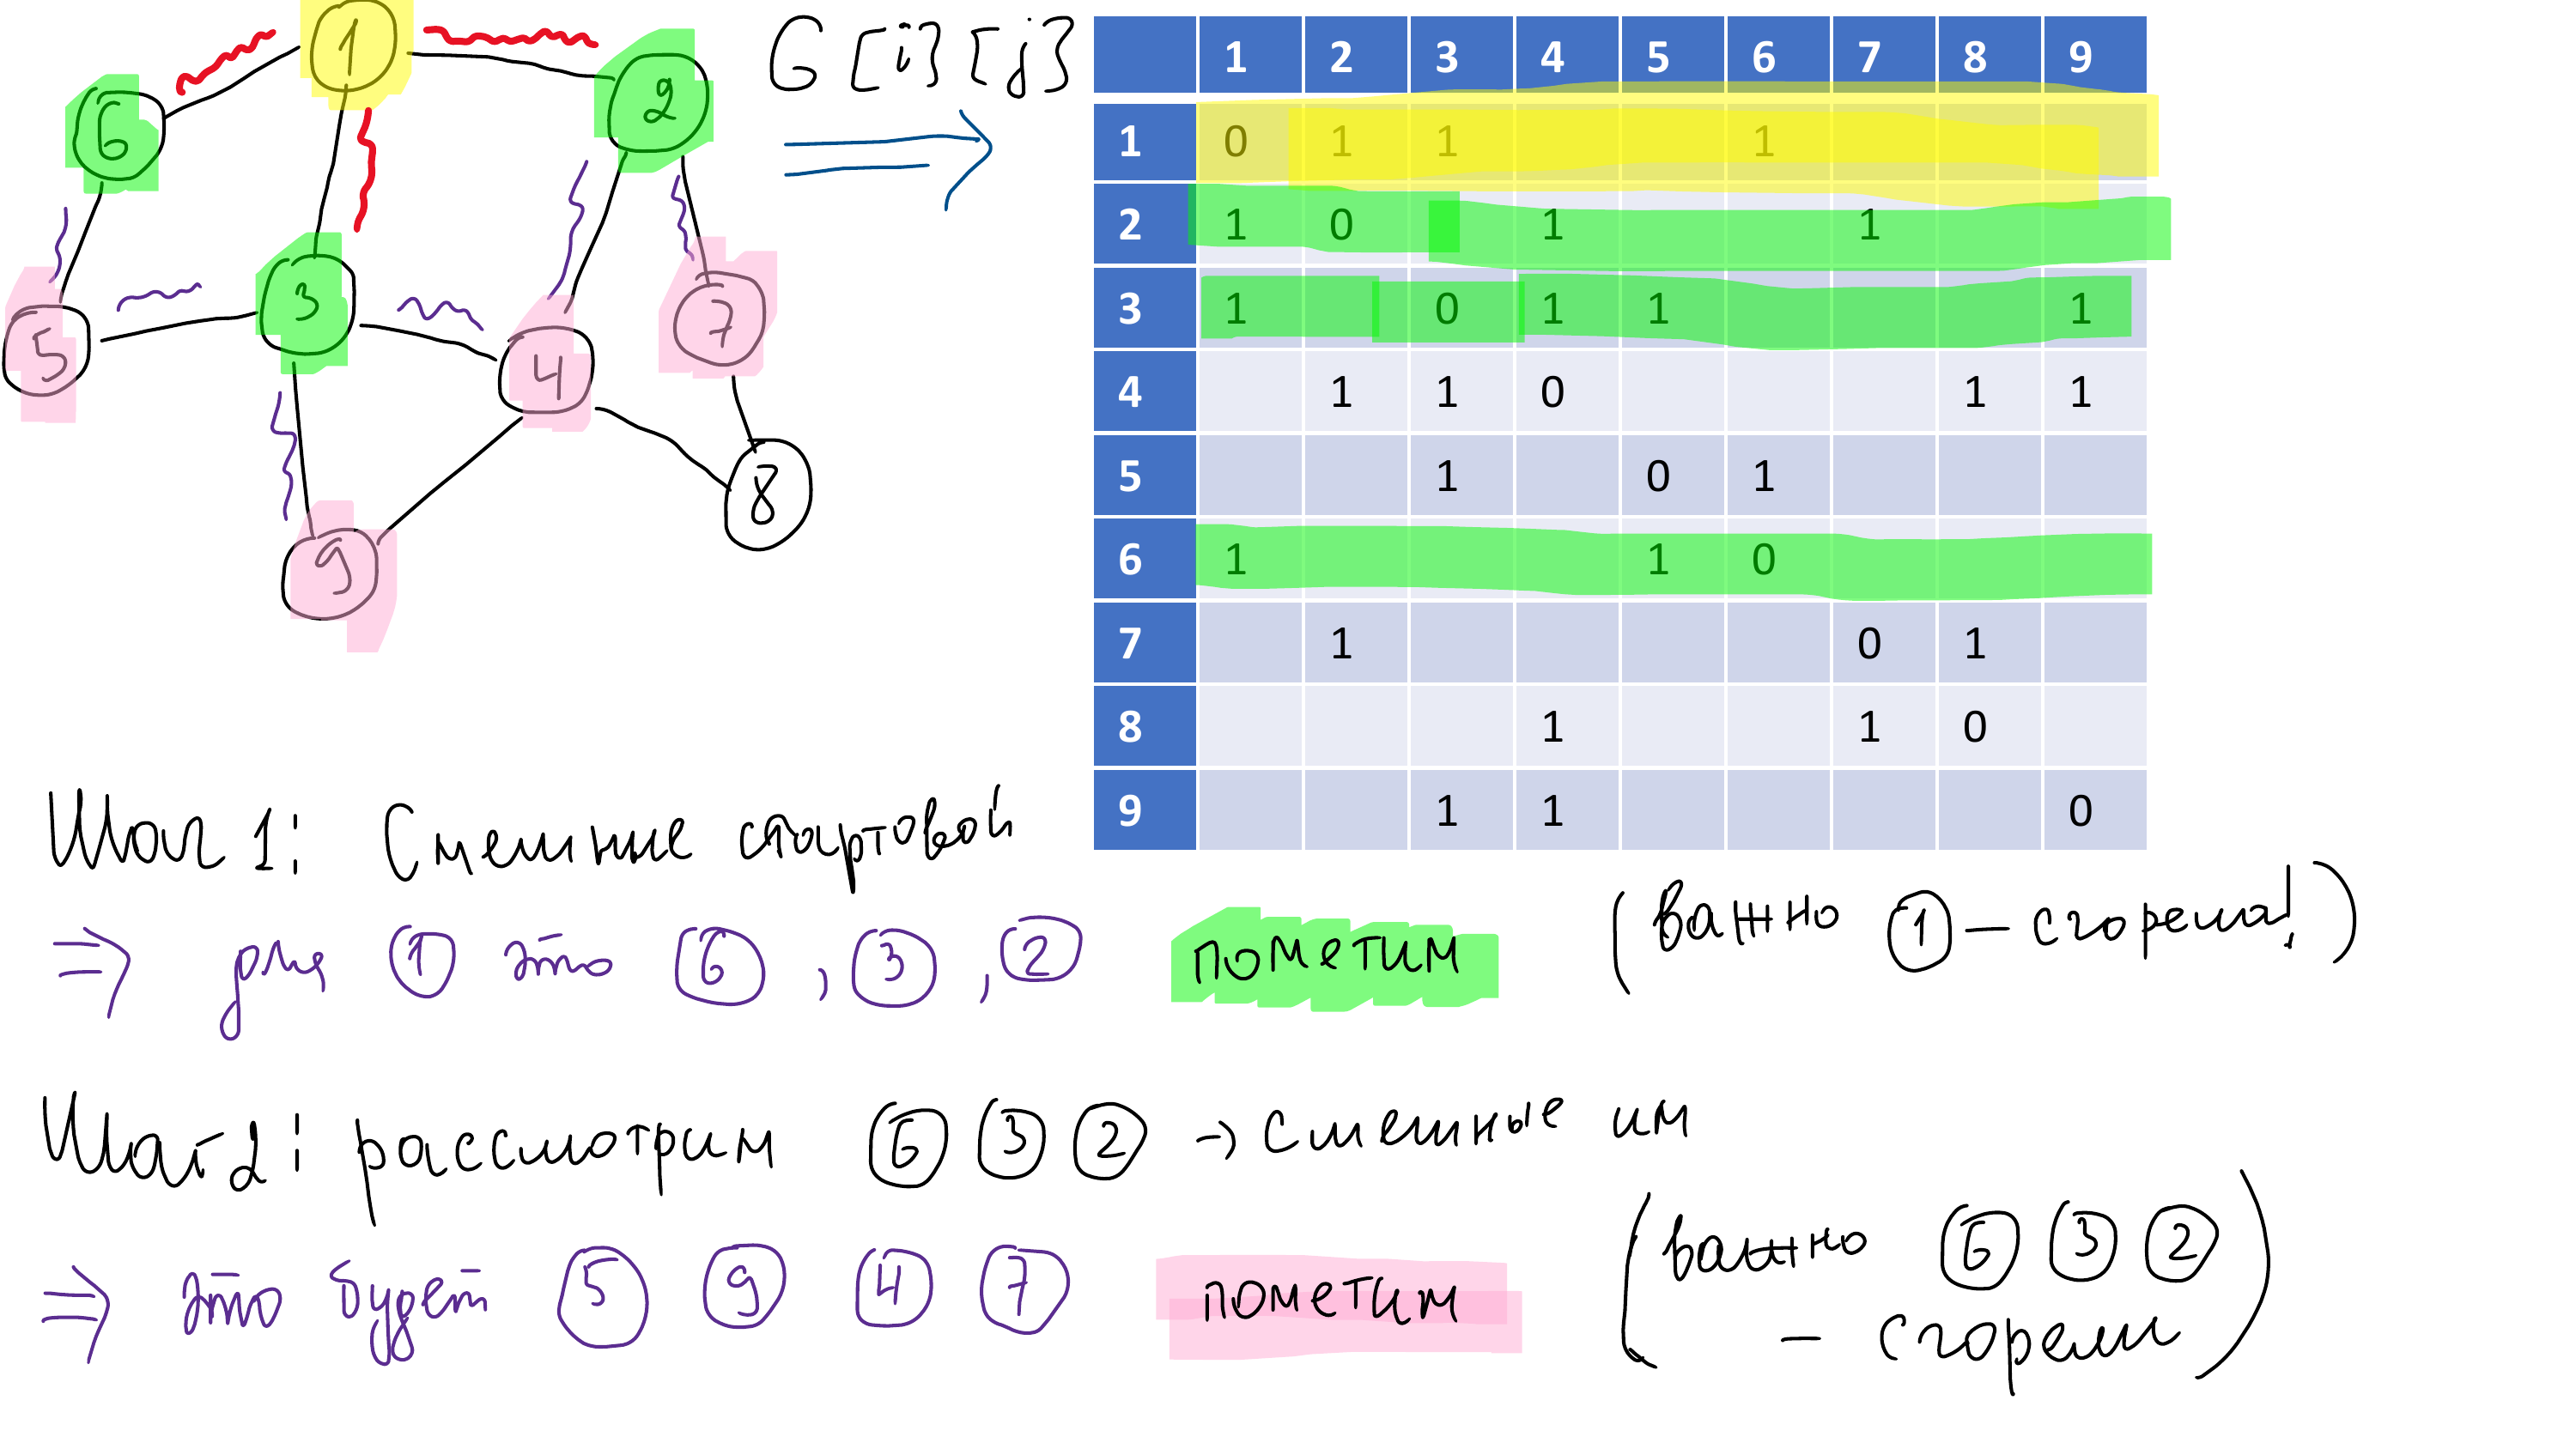 1
6
2
5
3
4
7
8
9
G [i][j]
1 2 3 4 5 6 7 8 9
1 0 1 1 1
2 1 0 1 1
3 1 0 1 1 1
4 1 1 0 1 1
5 1 0 1
6 1 1 0
7 1 0 1
8 1 1 0
9 1 1 0
Шаг 1: Смежные стартовой
⇒ для 1 это 6, 3, 2 пометим (важно 1 – сгорела!)
Шаг 2: рассмотрим 6 3 2 → смежные им
⇒ это будет 5 9 4 7 пометим (важно 6 3 2
– сгорели)